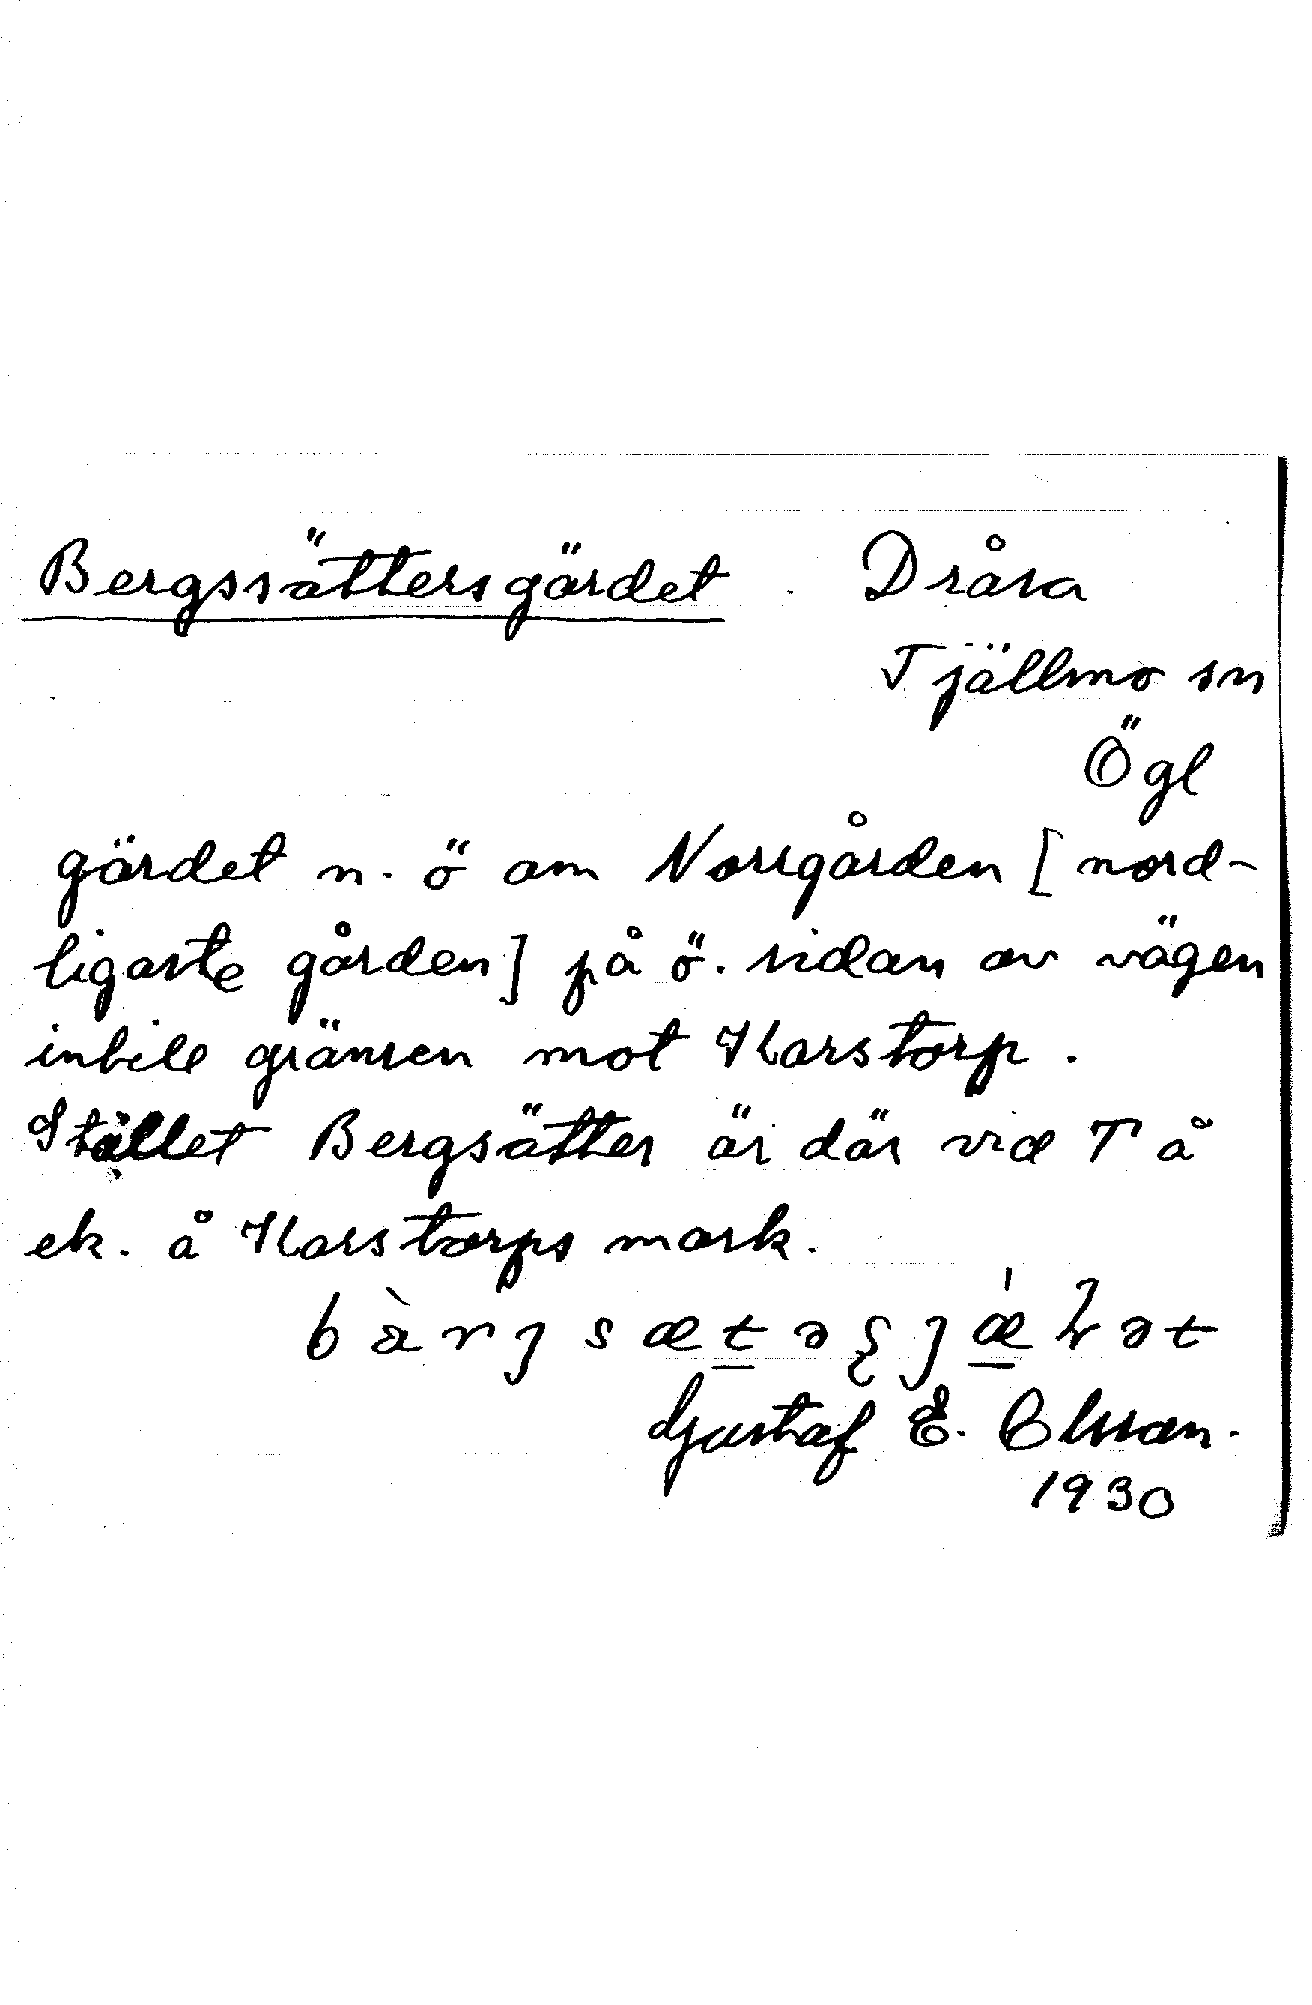 Bergssättersgärdet Dråsa
Tjällmo sn
Ögl
gärdet n. ö om Norrgården [nord-
ligaste gården] på ö. sidan av vägen
intill gränsen mot Karstorp.
Stället Bergsätter är där vid T å
ek. å Karstorps mark.
Gustaf E. Olsson.
1930